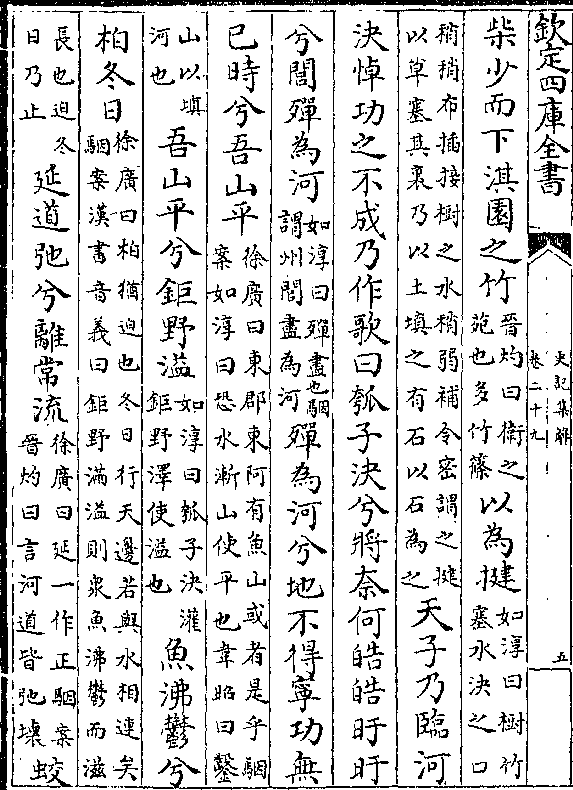 欽定四庫全書
史記集解
卷二十九
五
柴少而下淇園之竹
晉灼曰衛之
苑也多竹篠
以為揵
如淳曰樹竹
塞水決之口
稍稍布插接樹之水稍弱補令密謂之揵
以草塞其裏乃以土填之有石以石為之
天子乃臨河
決悼功之不成乃作歌曰瓠子決兮將奈何皓皓旴旴
兮閭殫為河
如淳曰殫盡也駰
謂州閭盡為河
殫為河兮地不得寧功無
已時兮吾山平
徐廣曰東郡東阿有魚山或者是乎駰
案如淳曰恐水漸山使平也韋昭曰鑿
山以填
河也
吾山平兮鉅野溢
如淳曰瓠子決灌
鉅野澤使溢也
魚沸鬱兮
柏冬日
徐廣曰柏猶迫也冬日行天邊若與水相連矣
駰案漢書音義曰鉅野滿溢則衆魚沸鬱而滋
長也迫冬
日乃止
延道弛兮離常流
徐廣曰延一作正駰案
晉灼曰言河道皆弛壞
蛟